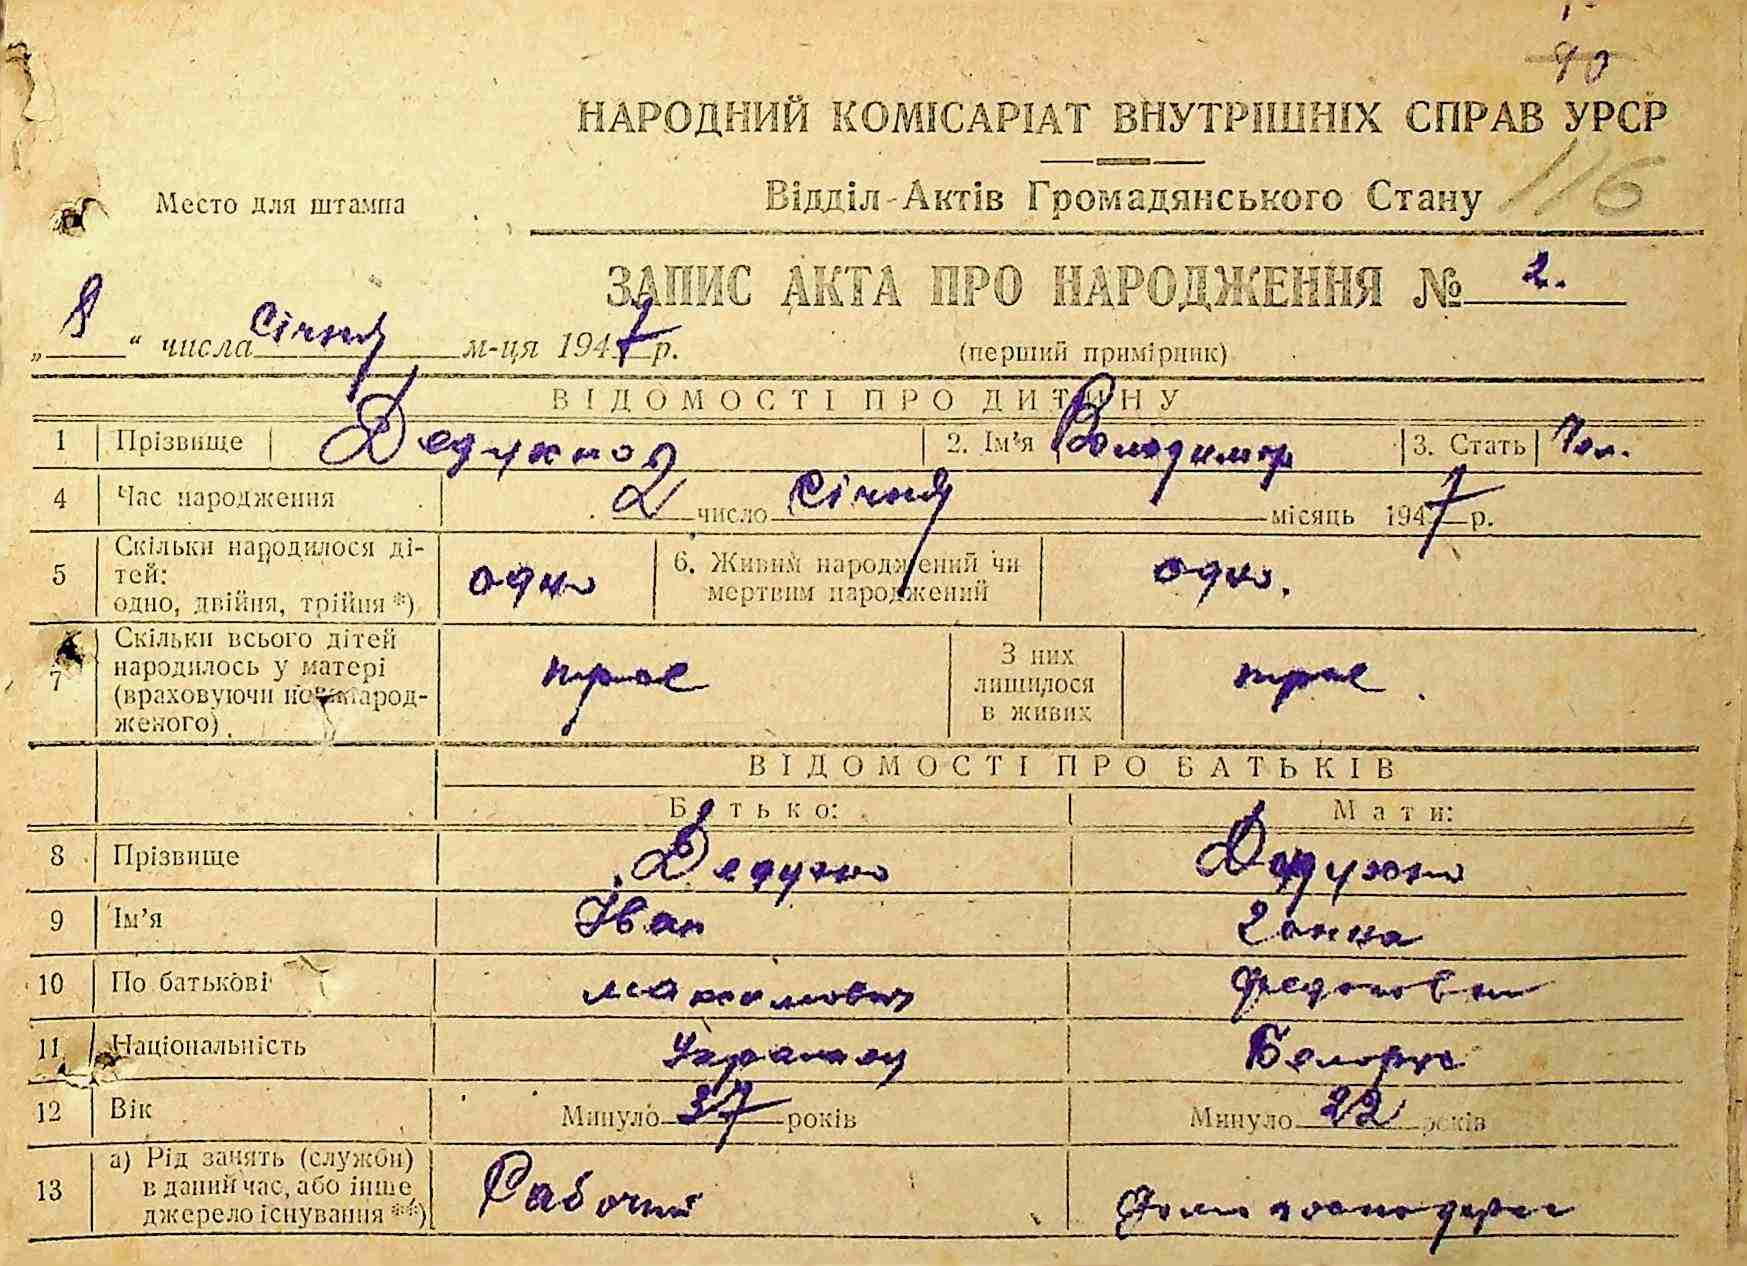 90
НАРОДНИЙ КОМІСАРІАТ ВНУТРІШНІХ СПРАВ УРСР
116
Відділ Актів Громадянського Стану
Место для штампа
ЗАПИС АКТА ПРО НАРОДЖЕННЯ № 2.
„8“ числа січня м-ця 1947 р.
(перший примірник)
ВІДОМОСТІ ПРО ДИТИНУ
1 Прізвище Дедухно 2. Ім'я Володимир 3. Стать Чол.
4 Час народження 2 число січня місяць 1947 р.
5 Скільки народилося ді-
тей:
одно, двійня, трійня *) одно 6. Живим народжений чи
мертвим народжений одно.
7 Скільки всього дітей
народилось у матері
(враховуючи новонарод-
женого) троє З них
лишилося
в живих троє.
ВІДОМОСТІ ПРО БАТЬКІВ
Батько: Мати:
8 Прізвище Дедухно Дедухно
9 Ім'я Іван Ганна
10 По батькові Максимович Федоровна
11 Національність Українец Белорус
12 Вік Минуло 37 років Минуло 22 років
13 а) Рід занять (служби)
в даний час, або інше
джерело існування **) Рабочий Дом господарка